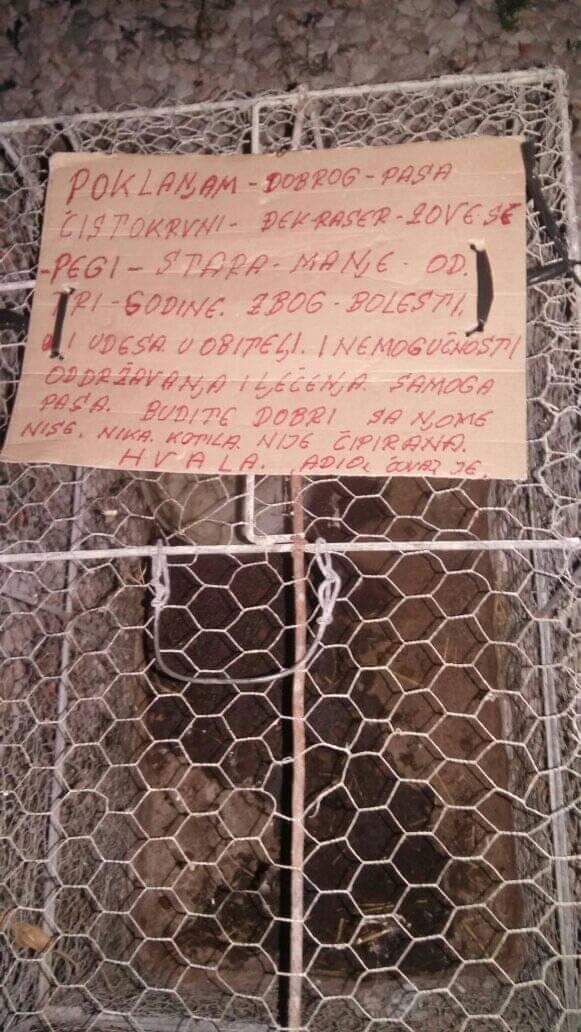 POKLANJAM - DOBROG - PASA
ČISTOKRVNI - DEK-RASER - ZOVE SE
- PEGI - STARA - MANJE - OD.
TRI - GODINE. ZBOG - BOLESTI.
I UDESA. U OBITELJI. I NEMOGUČNOSTI
ODDRŽAVANJA I LJEČENJA. SAMOGA
PASA. BUDITE DOBRI SA NJOME
NISE. NIKA. KOTILA. NIJE ČIPIRANA.
HVALA. ADIO, ČUVAJ JE.